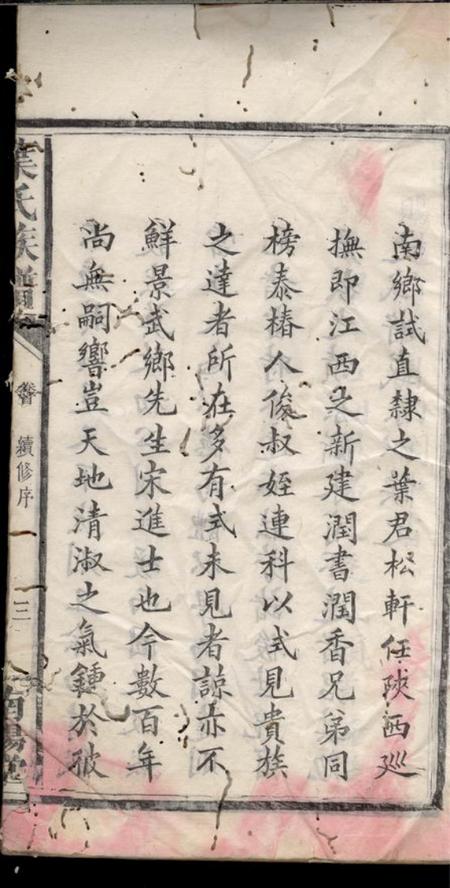 南鄉試直隸之葉君松軒任陝西巡
撫即江西之新建潤書潤香兄弟同
榜泰椿人俊叔姪連科以式見貴族
之達者所在多有式未見者諒亦不
鮮景武鄉先生宋進士也今數百年
尚無嗣響豈天地清淑之氣鍾於彼
葉氏族譜
卷首
續修序
三
南陽堂